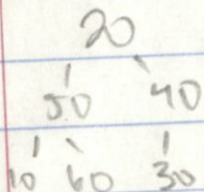 20
50 40
10 60 30